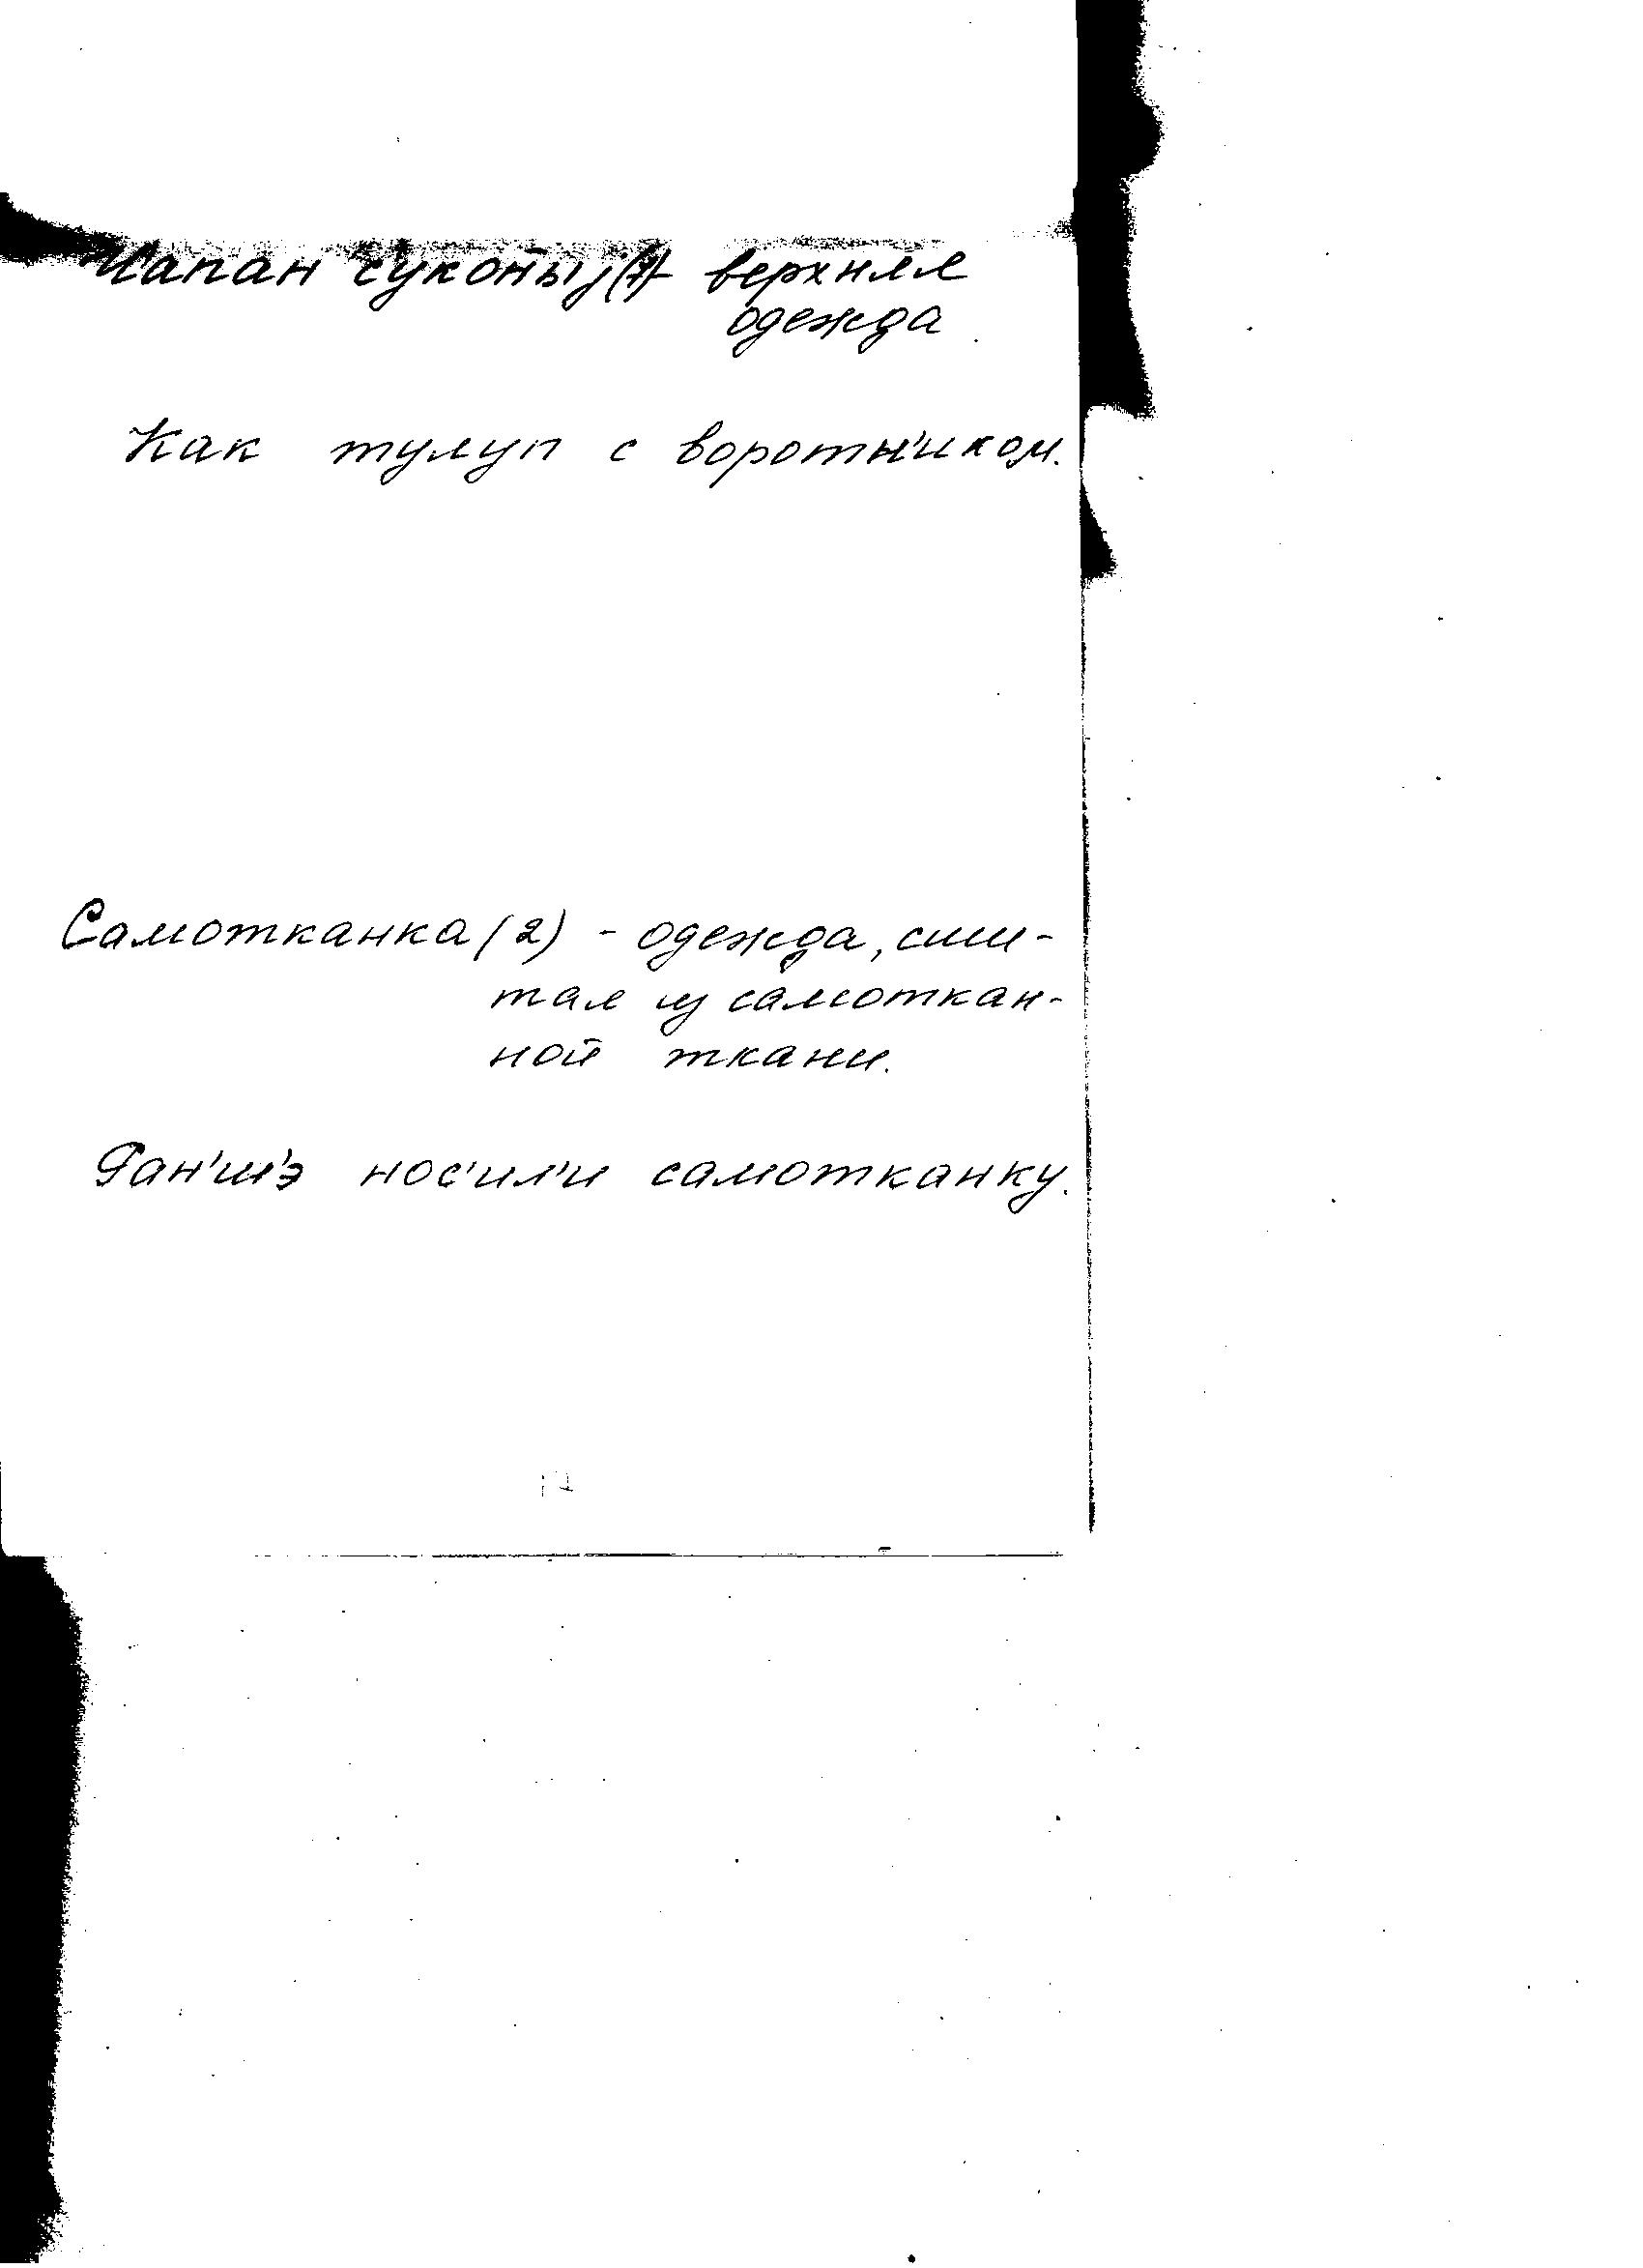 Чапан сукон̄ыj (7) – верхняя
одежда
Как тулуп с воротн'иком.
Самотканка (2) – одежда, сши-
тая из самоткан-
ной ткани.
Ран'ш'э нос'ил'и самотканку.